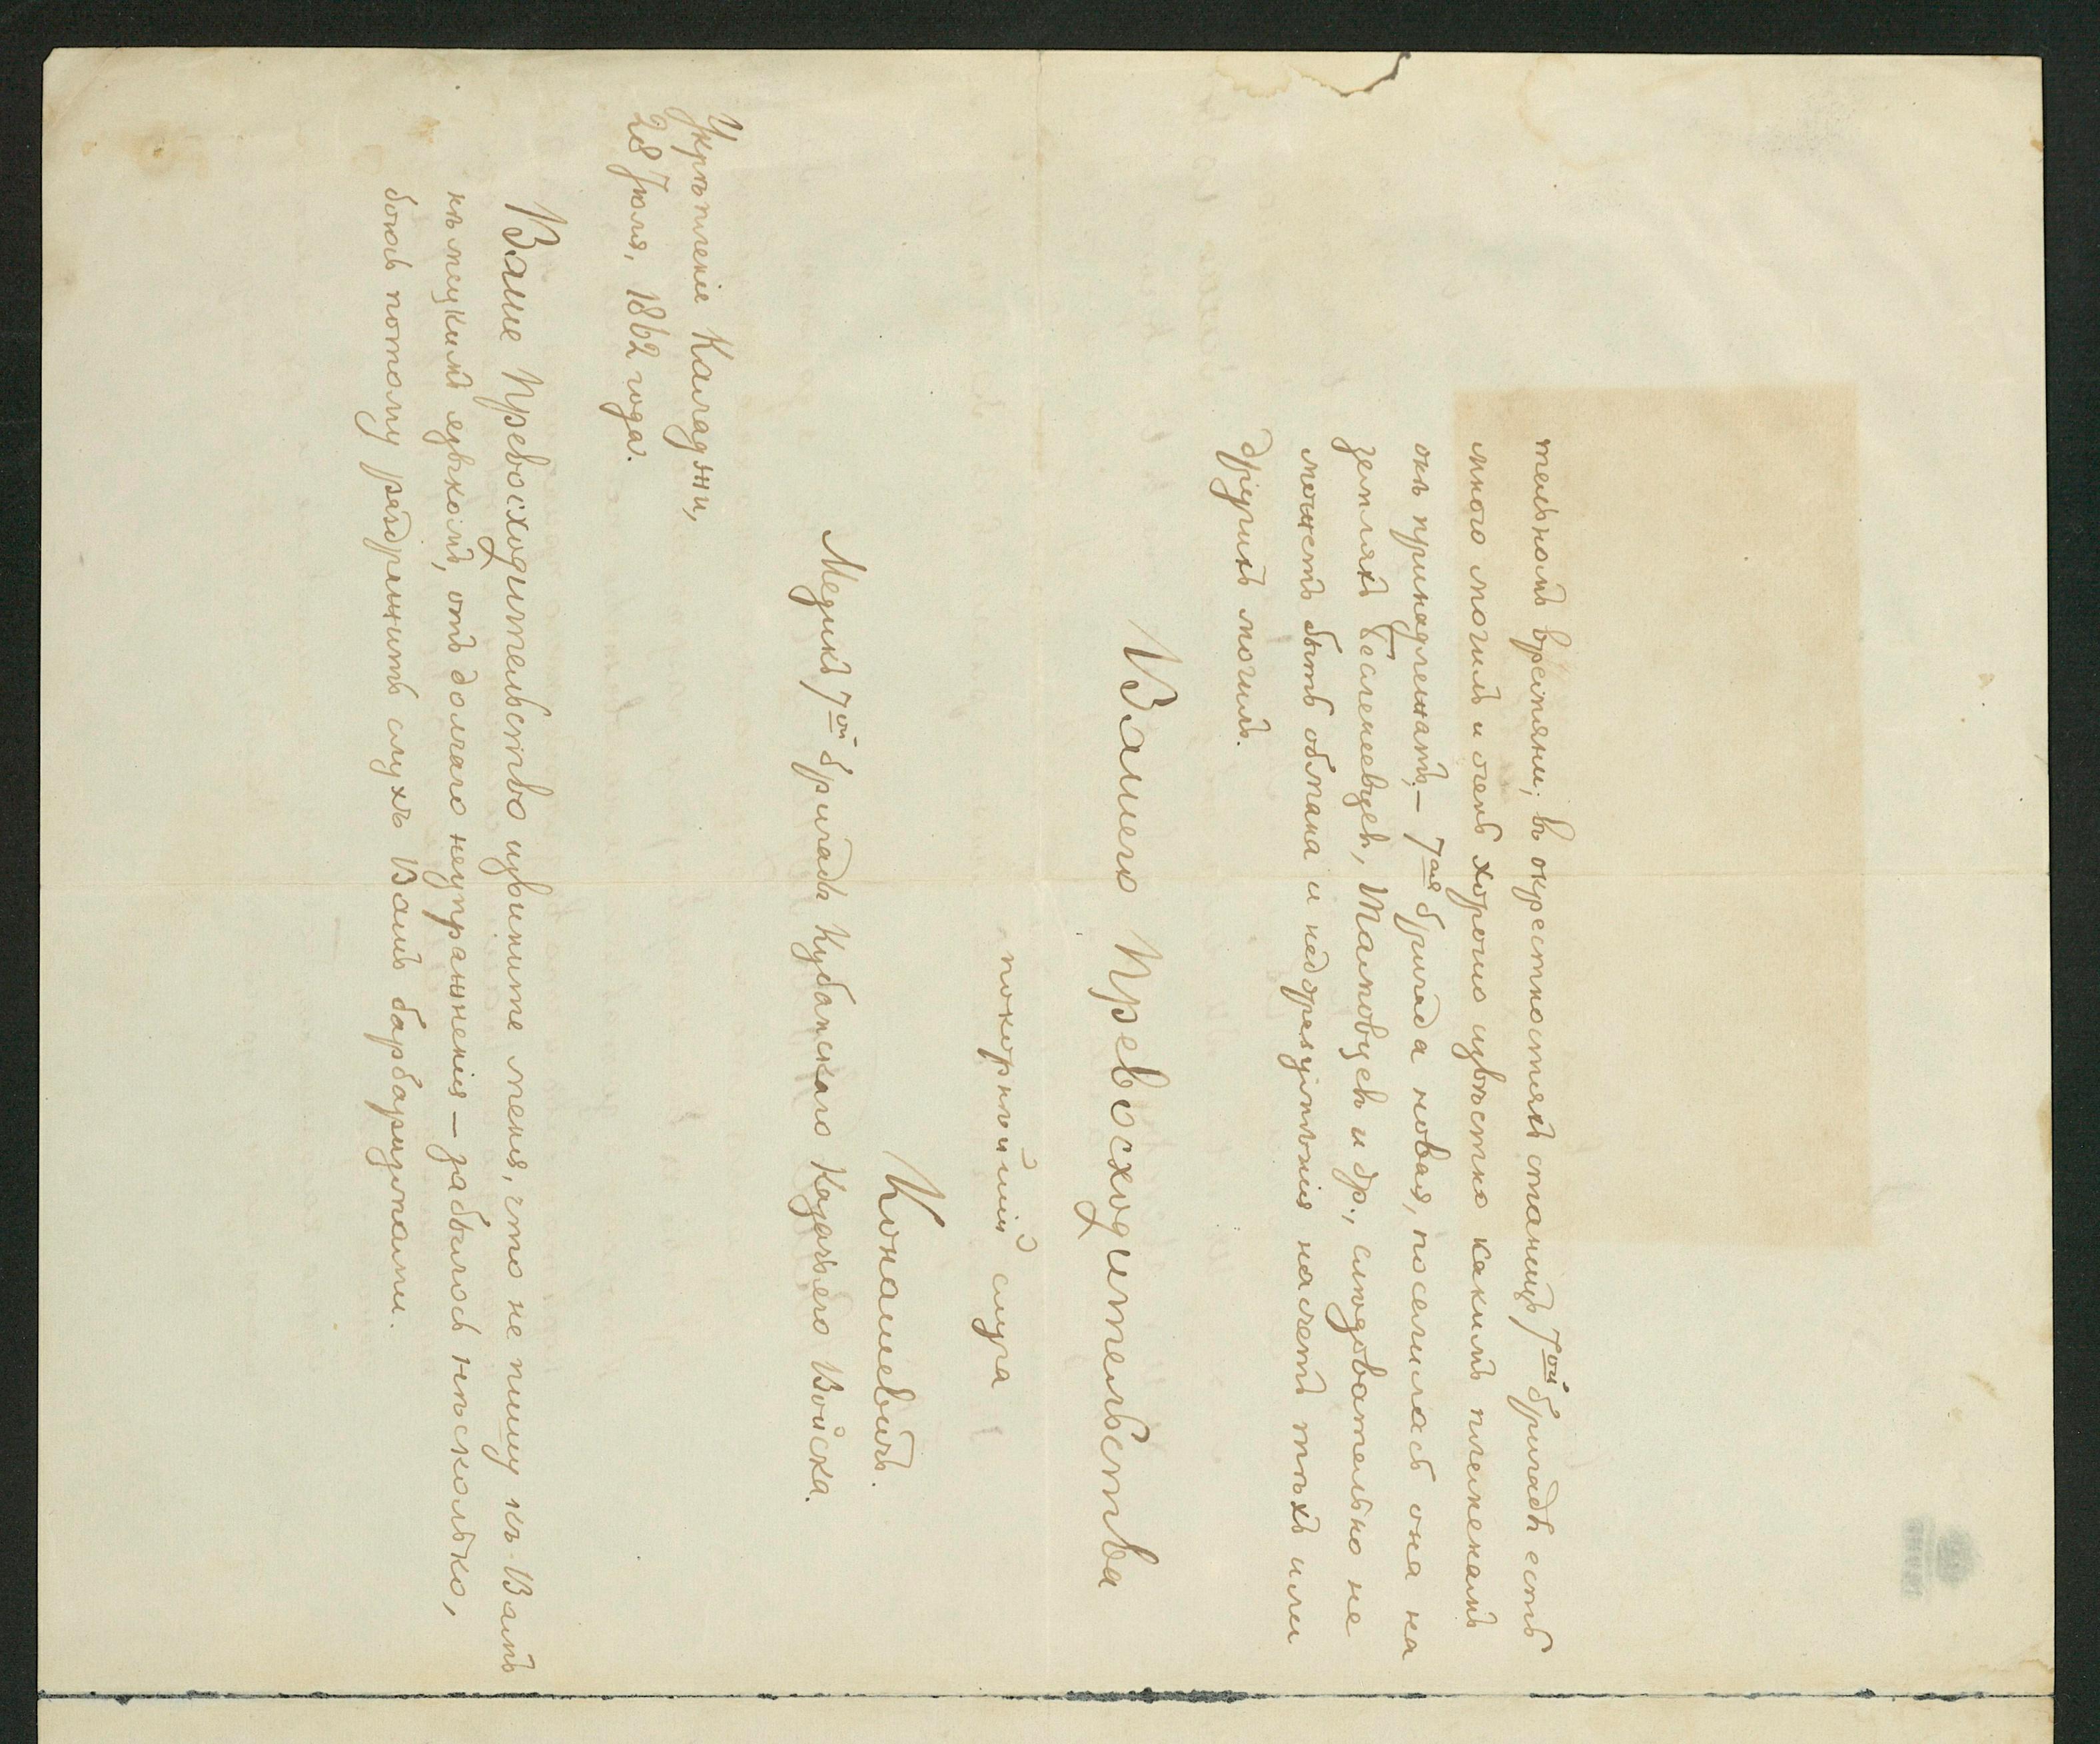 тельномъ времяни; въ окрестностяхъ станицъ 7ой бригады есть
много могилъ и очень хорошо извѣстно какимъ племенамъ
онѣ принадлежатъ, – 7ая бригада новая, поселилась она на
земляхъ Бесленеевцевъ, Тамовцевъ и др., слюдовательно не
можетъ быть обмана и недоразумѣнія насчетъ тѣхъ или
другихъ могилъ.
Вашего Превосходительства
покорнѣйшій слуга
Конашевичъ.
Медикъ 7ой бригады Кубанскаго Казачьего Войска.
Укрѣпленіе Каладжи,
28 Іюля, 1862 года.
Ваше Превосходительство извините меня, что не пишу къ Вамъ
нѣмецкимъ языкомъ, отъ долгаго неупражненія – забылось нѣсколько,
боюсь потому раздражить слухъ Вашъ барбаризмами.